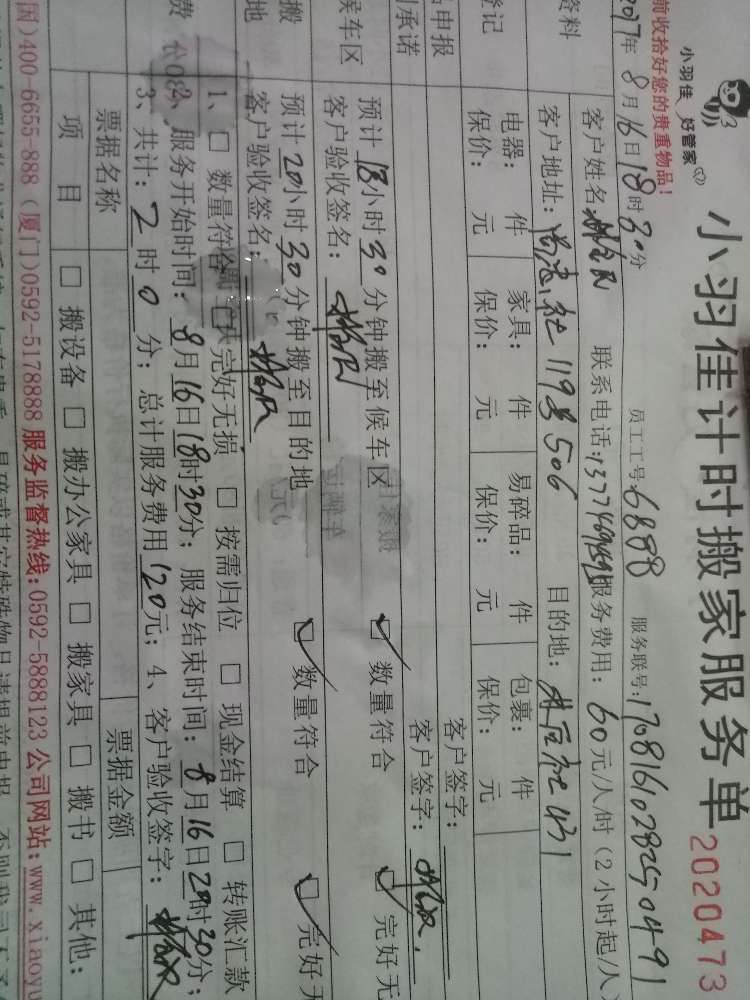 小羽佳计时搬家服务单 2020473
小羽佳 好管家
前收拾好您的贵重物品!
员工工号:6888 服务联号:
年8月16日18时30分
资料
客户姓名: 联系电话: 服务费用:60元/人/时(2小时起/人
客户地址: 119号506 目的地:
登记
电器: 件 家具: 件 易碎品: 件 包裹: 件
保价: 元 保价: 元 保价: 元 保价: 元
申报
客户签字:
承诺
客户签字:
候车区
预计18小时30分钟搬至候车区 数量符合 完好无
客户验收签名:
搬
地
预计20小时30分钟搬至目的地 数量符合 完好无
客户验收签名:
费
1、□ 数量符合 □ 完好无损 □ 按需归位 □ 现金结算 □ 转账汇款
2、服务开始时间:8月16日18时30分;服务结束时间:8月16日20时30分;
3、共计:2时0分;总计服务费用120元;4、客户验收签字:
票据名称 票据金额
项目 □ 搬设备 □ 搬办公家具 □ 搬家具 □ 搬书 □ 其他:
国)400-6655-888(厦门)0592-5178888 服务监督热线:0592-5888123 公司网站:www.xiaoyu